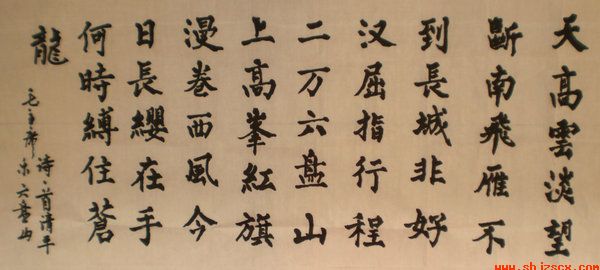 天高雲淡望
断南飛雁不
到長城非好
汉屈指行程
二万六盘山
上高峯紅旗
漫卷西風今
日長纓在手
何時縛住蒼
龍
毛主席
诗一首清平
乐六盘山